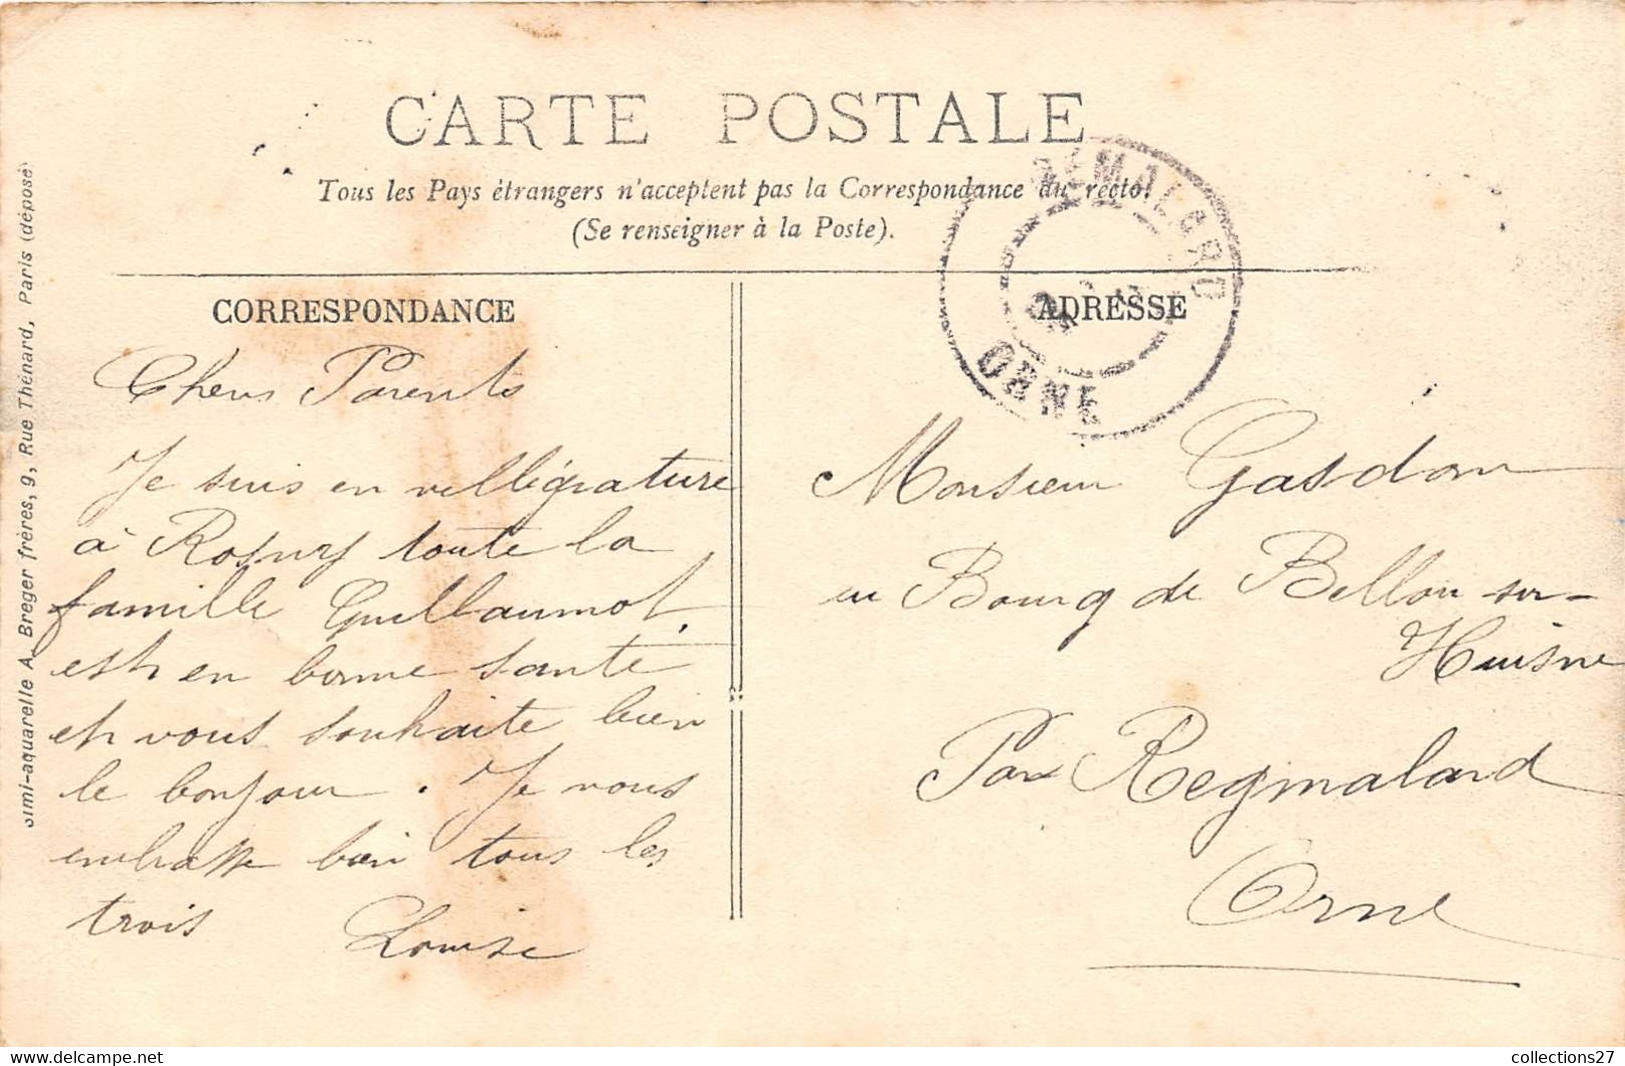 CARTE POSTALE
Tous les Pays étrangers n'acceptent pas la Correspondance au recto.
(Se renseigner à la Poste).
CORRESPONDANCE
Chers Parents
Je suis en villégrature
à Rosny toute la
famille Guillaumot,
est en bonne santé
et vous souhaite bien
le bonjour. Je vous
embrasse bien tous les
trois Louise
ADRESSE
Monsieur Gasdon
au Bourg de Bellou sur-
Huisne
Par Regmalard
Orne
REMALARD
ORNE
Simi-aquarelle A. Breger frères, 9, Rue Thénard, Paris (déposé)
collections27